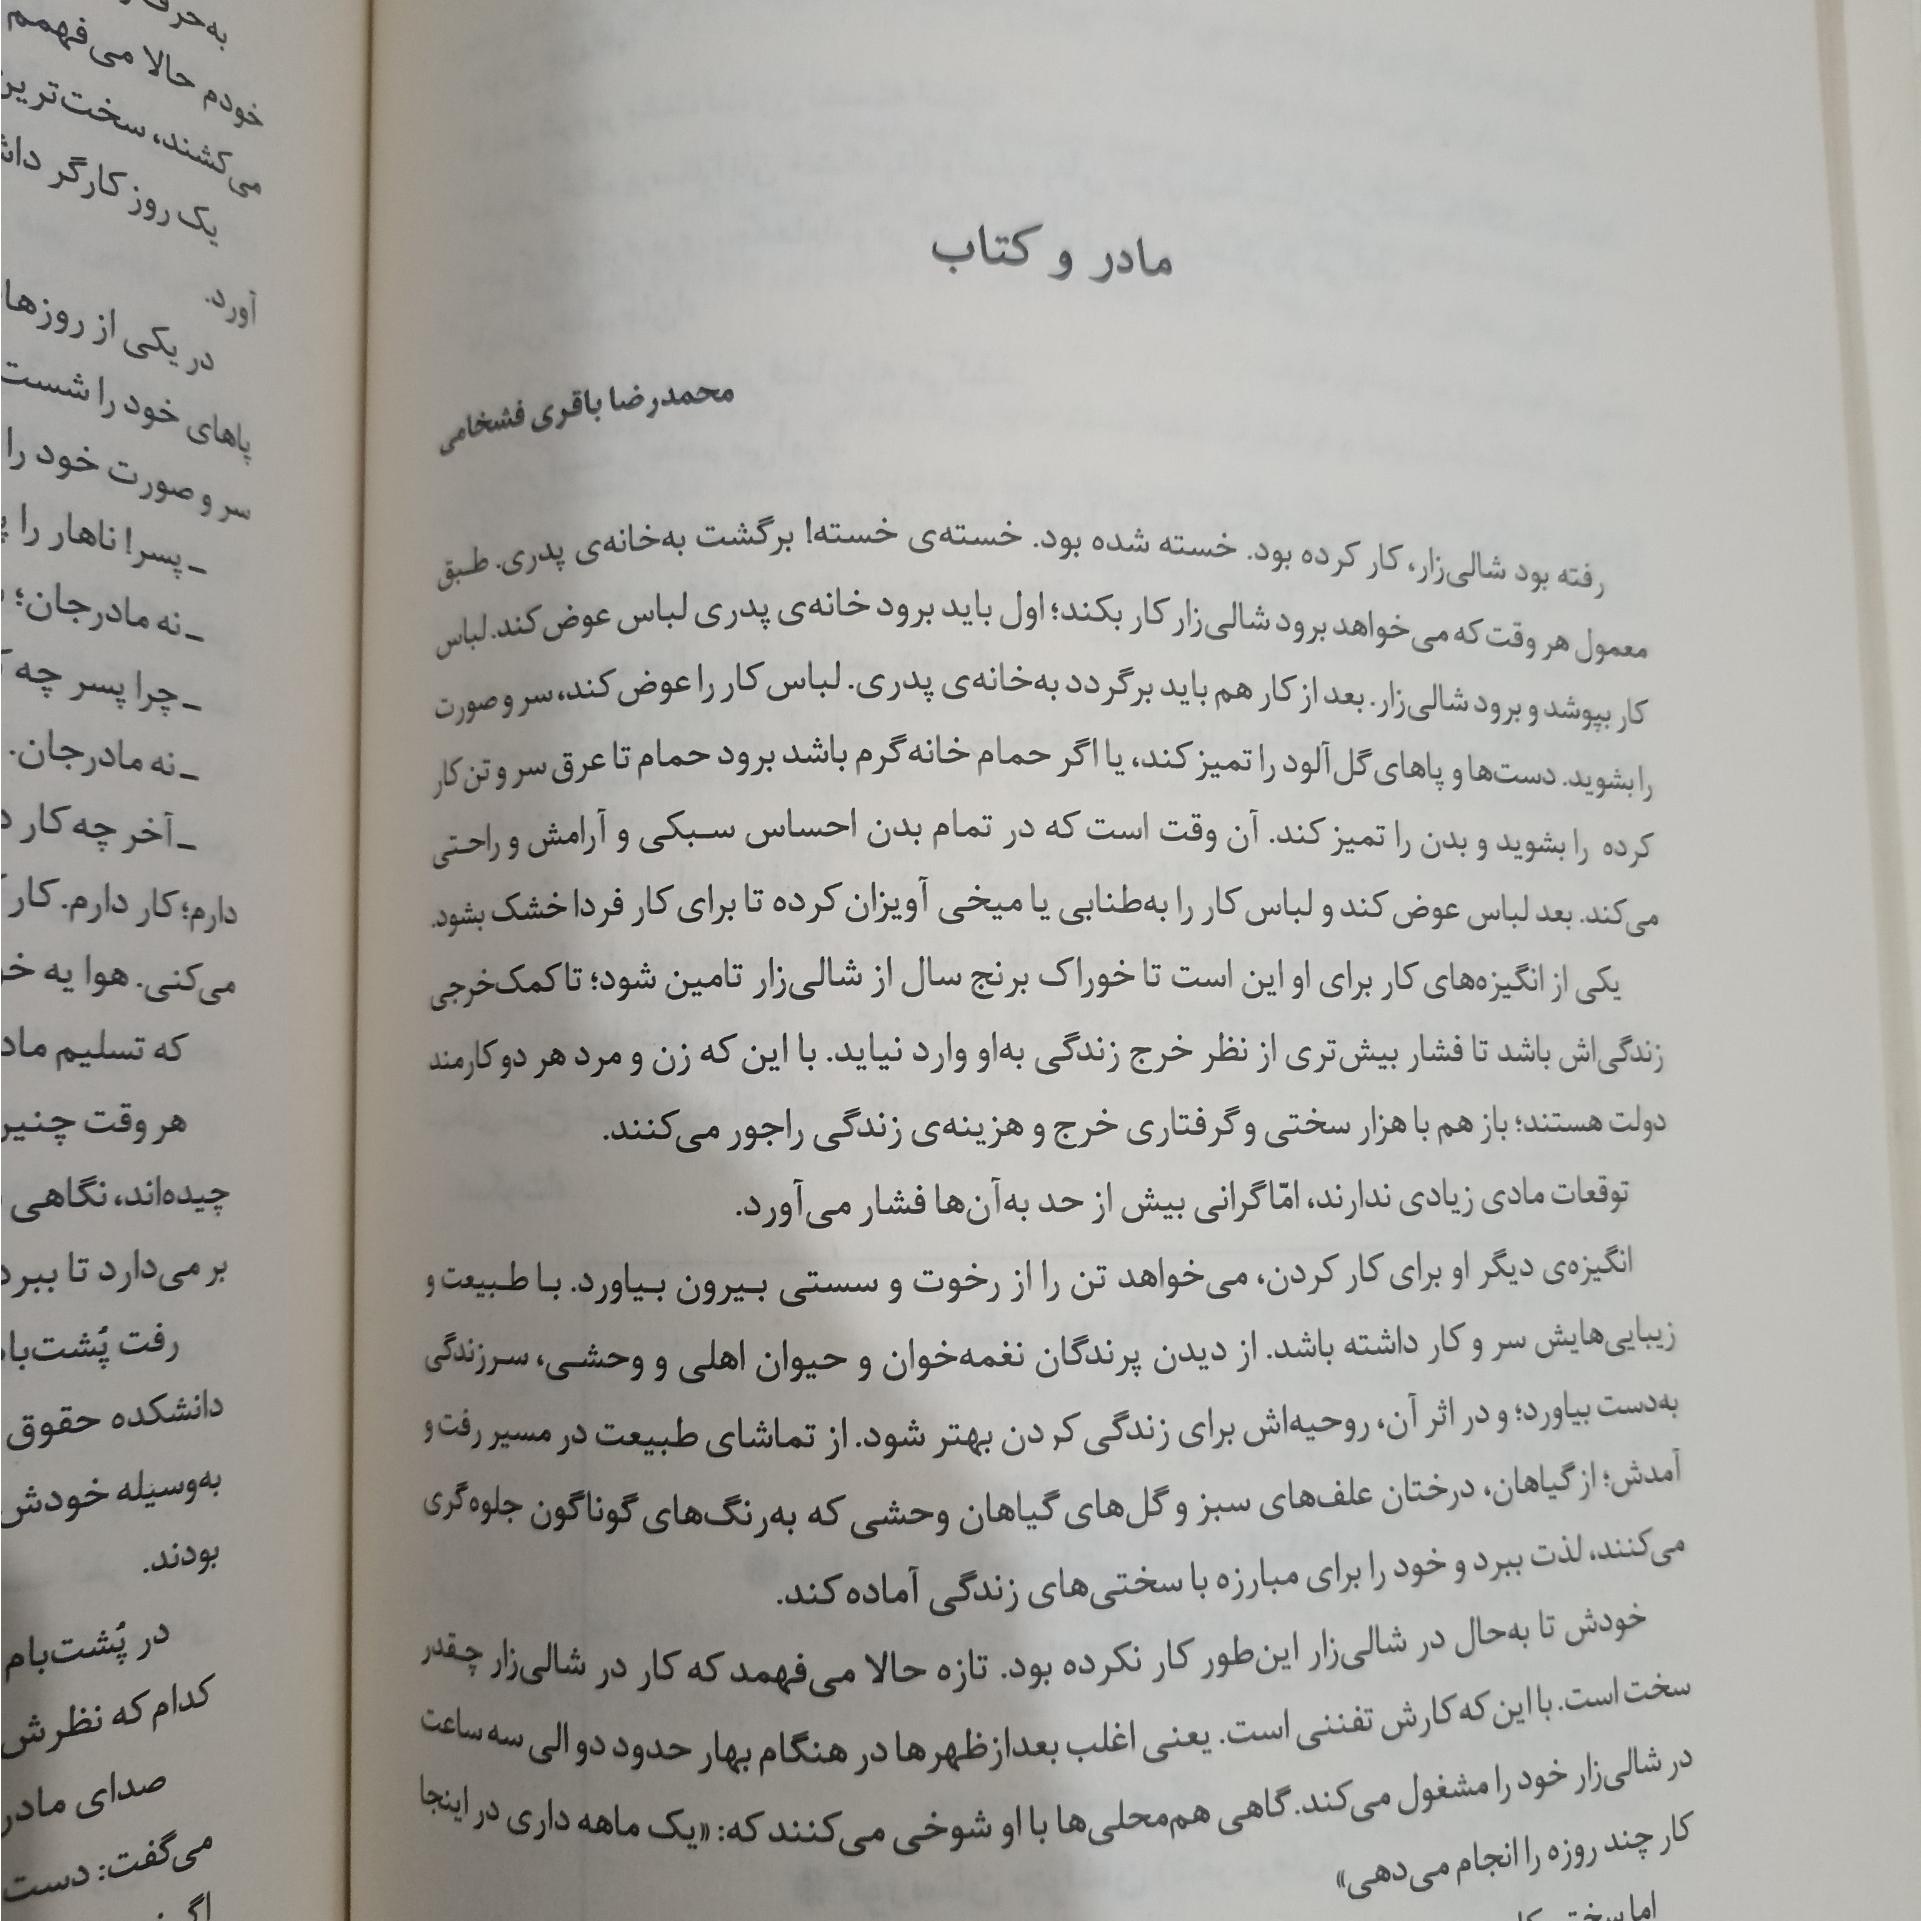 مادر و کتاب
محمدرضا باقری فشخامی
رفته بود شالی‌زار، کار کرده بود. خسته شده بود. خسته‌ی خسته! برگشت به‌خانه‌ی پدری. طبق
معمول هر وقت که می‌خواهد برود شالی‌زار کار بکند؛ اول باید برود خانه‌ی پدری لباس عوض کند. لباس
کار بپوشد و برود شالی‌زار. بعد از کار هم باید برگردد به‌خانه‌ی پدری. لباس کار را عوض کند، سر و صورت
را بشوید. دست‌ها و پاهای گل‌آلود را تمیز کند، یا اگر حمام خانه گرم باشد برود حمام تا عرق سر و تن کار
کرده را بشوید و بدن را تمیز کند. آن وقت است که در تمام بدن احساس سبکی و آرامش و راحتی
می‌کند. بعد لباس عوض کند و لباس کار را به‌طنابی یا میخی آویزان کرده تا برای کار فردا خشک بشود.
یکی از انگیزه‌های کار برای او این است تا خوراک برنج سال از شالی‌زار تامین شود؛ تا کمک‌خرجی
زندگی‌اش باشد تا فشار بیش‌تری از نظر خرج زندگی به‌او وارد نیاید. با این که زن و مرد هر دو کارمند
دولت هستند؛ باز هم با هزار سختی و گرفتاری خرج و هزینه‌ی زندگی راجور می‌کنند.
توقعات مادی زیادی ندارند، امّا گرانی بیش از حد به‌آن‌ها فشار می‌آورد.
انگیزه‌ی دیگر او برای کار کردن، می‌خواهد تن را از رخوت و سستی بیرون بیاورد. با طبیعت و
زیبایی‌هایش سر و کار داشته باشد. از دیدن پرندگان نغمه‌خوان و حیوان اهلی و وحشی، سرزندگی
به‌دست بیاورد؛ و در اثر آن، روحیه‌اش برای زندگی کردن بهتر شود. از تماشای طبیعت در مسیر رفت و
آمدش؛ از گیاهان، درختان علف‌های سبز و گل‌های گیاهان وحشی که به‌رنگ‌های گوناگون جلوه‌گری
می‌کنند، لذت ببرد و خود را برای مبارزه با سختی‌های زندگی آماده کند.
خودش تا به‌حال در شالی‌زار این‌طور کار نکرده بود. تازه حالا می‌فهمد که کار در شالی‌زار چقدر
سخت است. با این که کارش تفننی است. یعنی اغلب بعدازظهرها در هنگام بهار حدود دو الی سه ساعت
در شالی‌زار خود را مشغول می‌کند. گاهی هم‌محلی‌ها با او شوخی می‌کنند که: «یک ماهه داری در اینجا
کار چند روزه را انجام می‌دهی»
اما
خودم حالا می‌فهمم
می‌کشند، سخت‌ترین
یک روز کارگر
آورد.
در یکی از روزها
پاهای خود را شست
سر و صورت خود را
ـ پسر! ناهار را
ـ نه مادرجان؛
ـ چرا پسر چه
ـ نه مادرجان.
ـ آخر چه کار
دارم؛ کار دارم. کار
می‌کنی. هوا یه
که تسلیم
هر وقت
چیده‌اند، نگاهی
بر می‌دارد تا
رفت
دانشکده حقوق
به‌وسیله خودش
بودند.
در پُشت‌بام
کدام که نظرش
صدای مادر
می‌گفت: دست